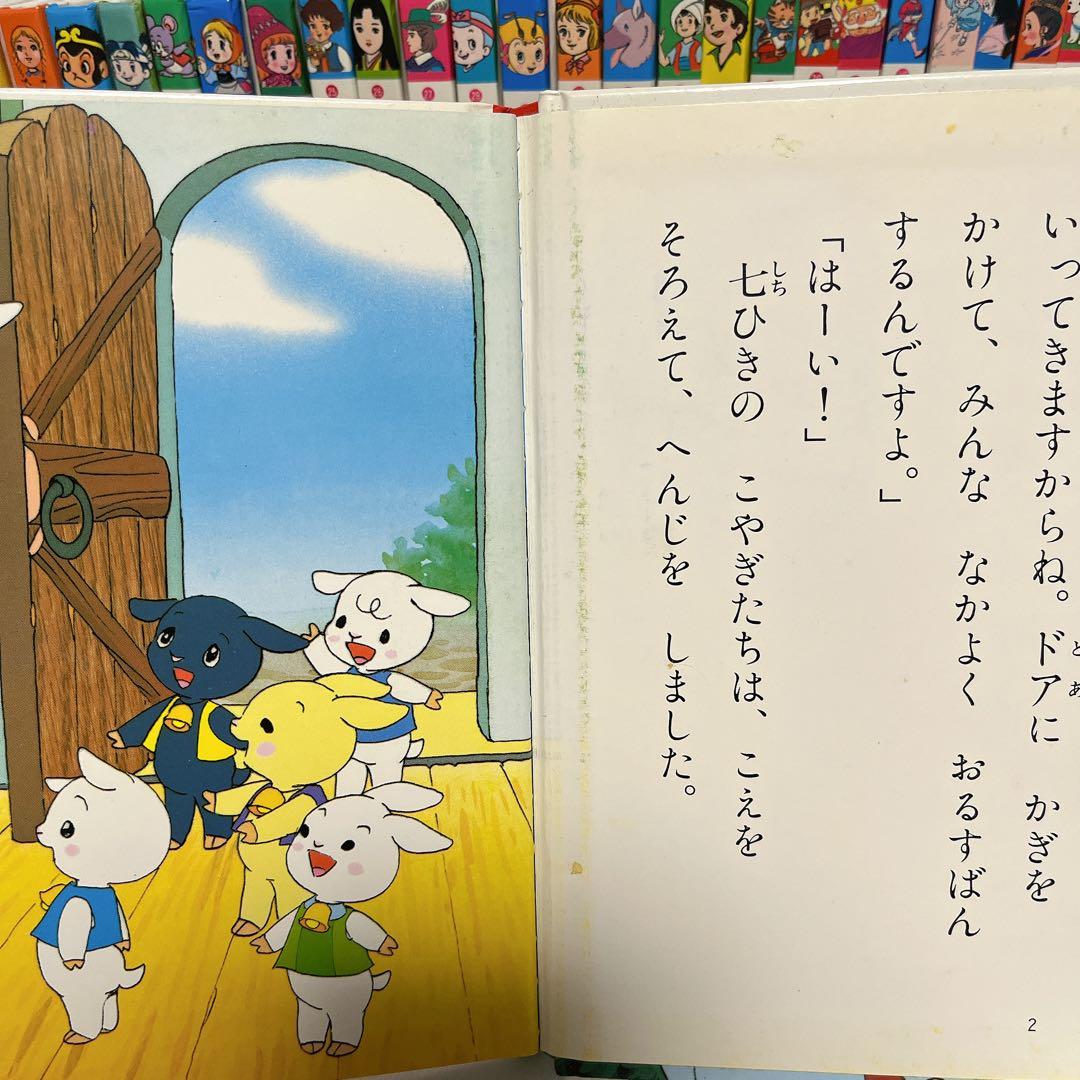 いってきますからね。ドアに かぎを
とあ
かけて、みんな なかよく おるすばん
するんですよ。」
「はーい！」
七ひきの こやぎたちは、こえを
しち
そろえて、へんじを しました。
2